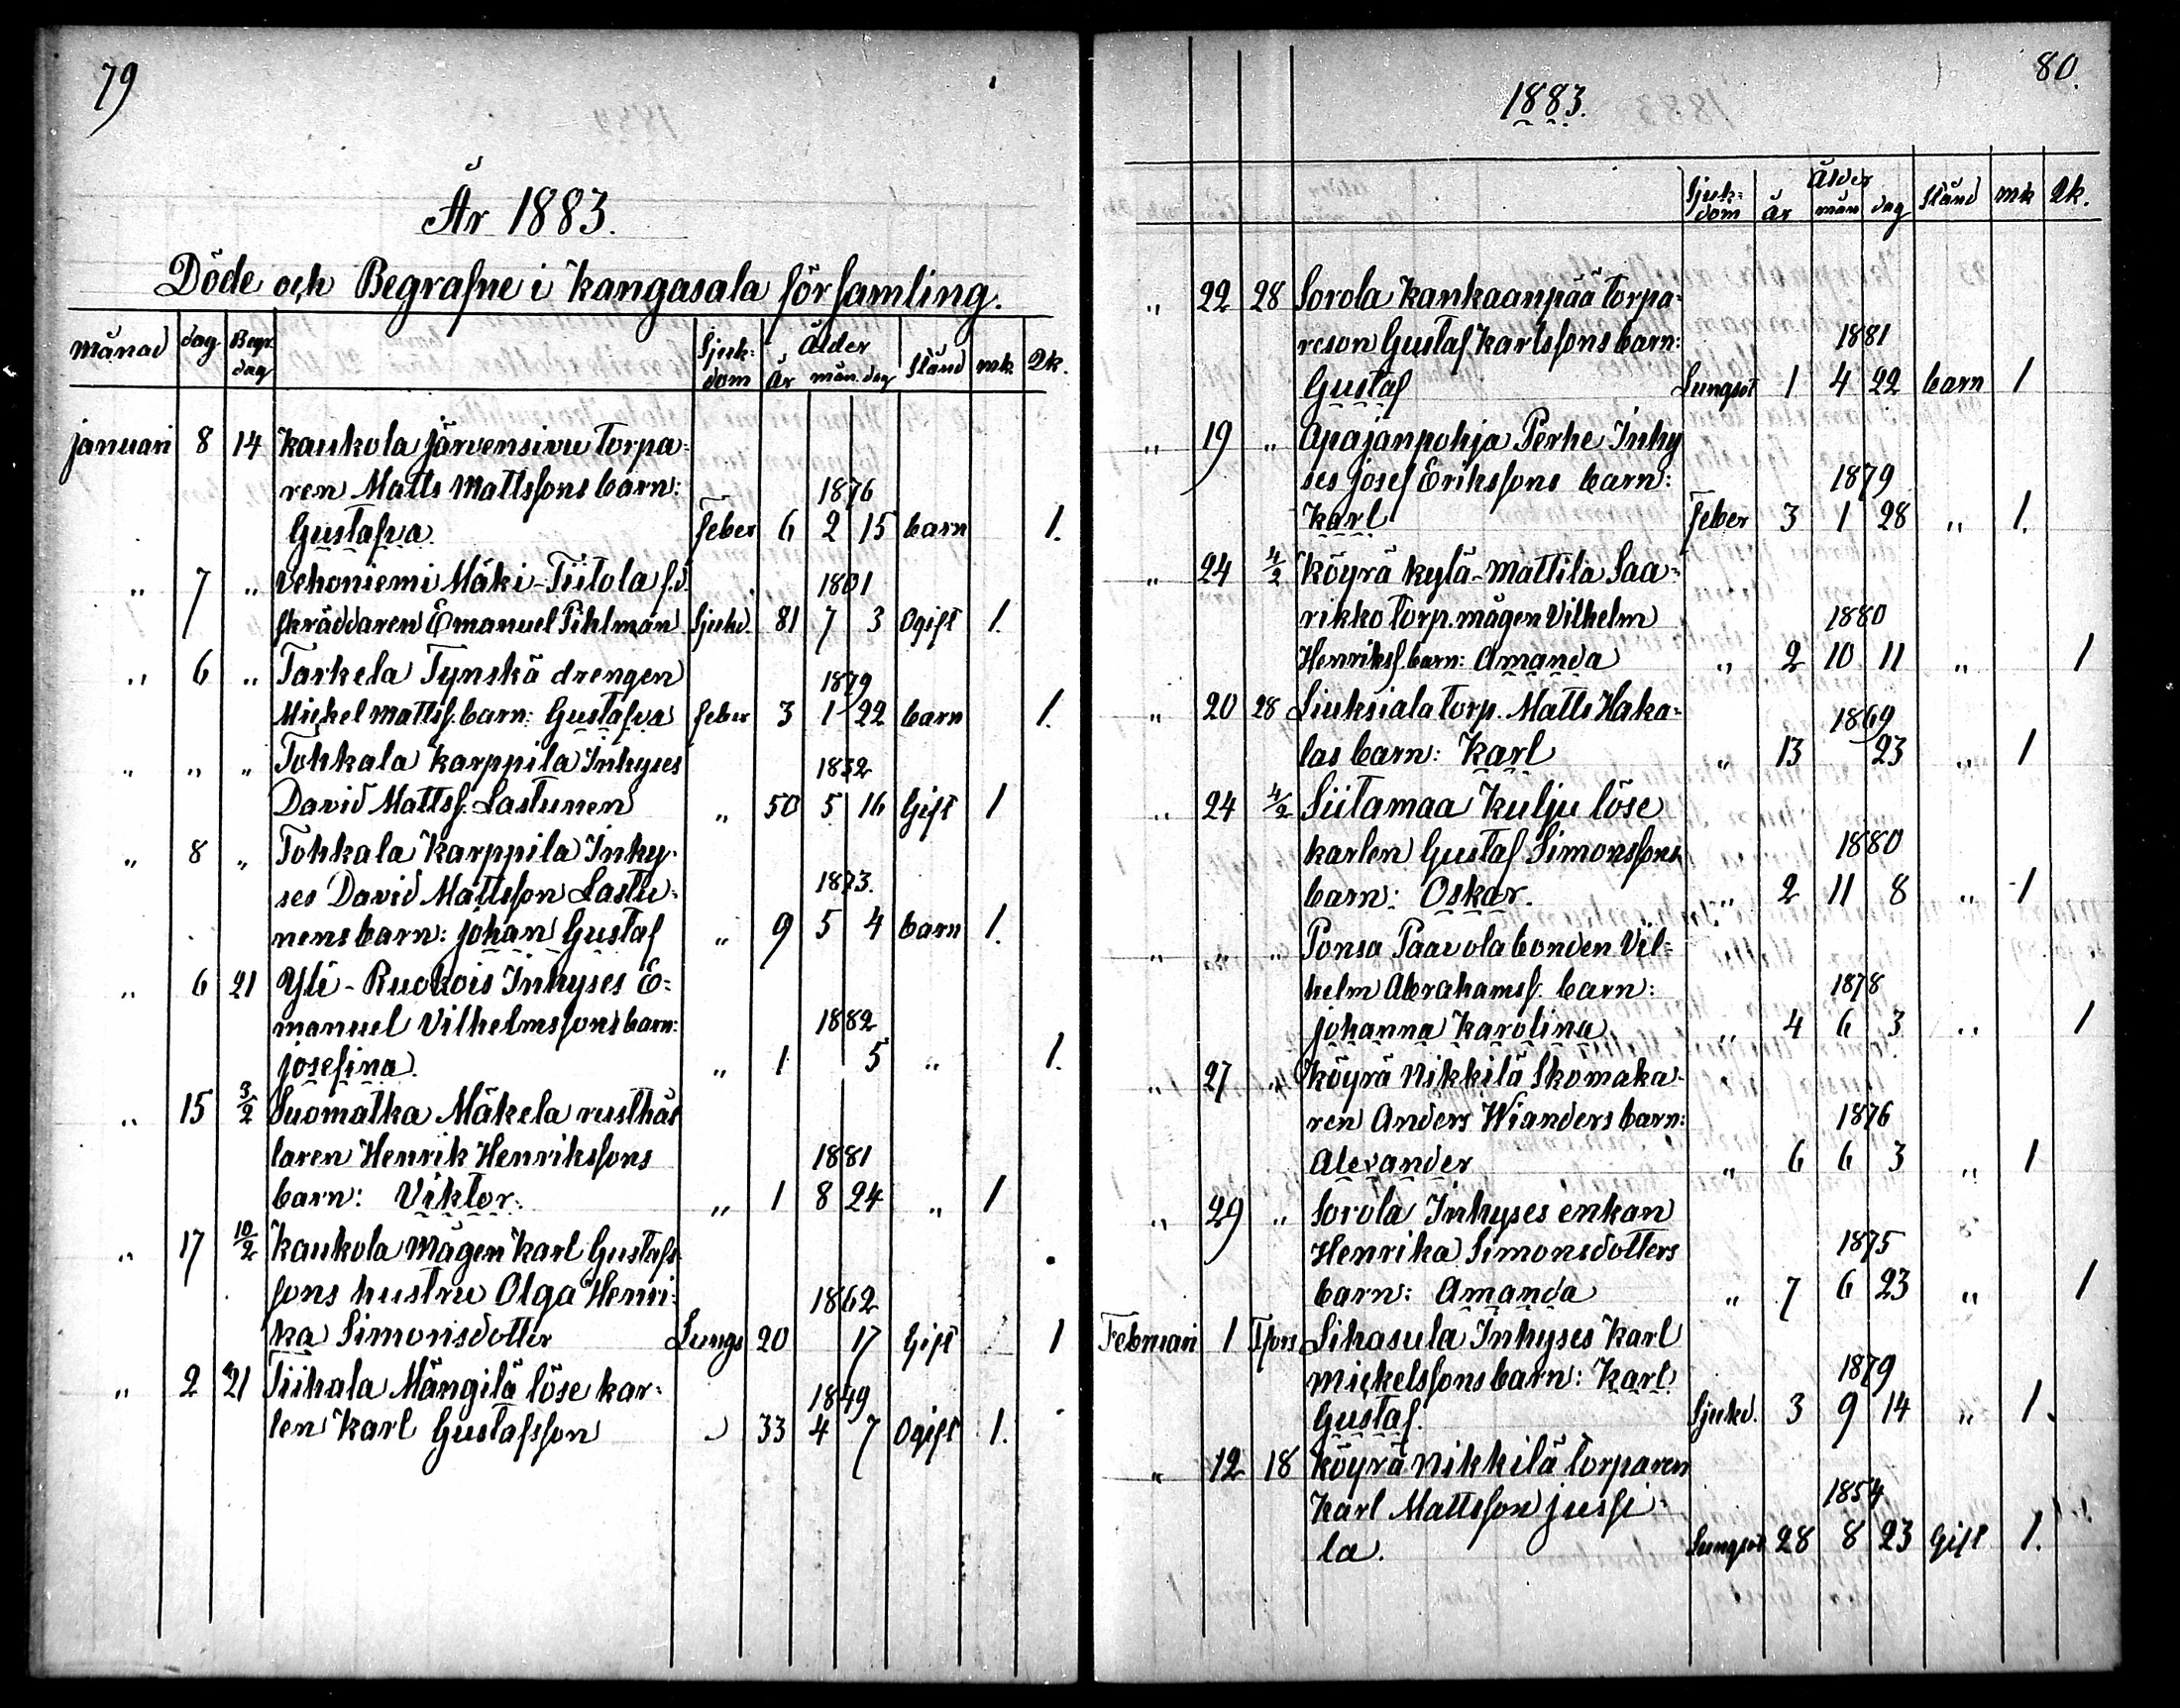 79
År 1883.
Döde och Begrafne i Kangasala församling.
månad dag Begr. dag Sjuk-dom Ålder år mån. dag Stånd mk Qk.
januari 8 14 Kaukola Järvensivu torpa-
ren Matts Mattssons barn: 1876
Gustafva feber 6 2 15 barn 1.
„ 7 „ Vehoniemi Mäki-Tiitola f.d. 1801
skräddaren Emanuel Pihlman Sjukd. 81 7 3 Ogift 1.
„ 6 „ Tarkela Tynskä drengen 1879
Mickel Mattss. barn: Gustafva feber 3 1 22 barn 1.
„ „ „ Tohkala Karppila Inhyses 1832
David Mattss. Lastunen „ 50 5 16 Gift 1
„ 8 „ Tohkala Karppila Inhy-
ses David Mattsson Lastu- 1873.
nens barn: Johan Gustaf „ 9 5 4 barn 1.
„ 6 21 Yli-Ruokois Inhyses E-
manuel Vilhelmssons barn: 1882
Josefina. „ 1 5 „ 1.
„ 15 3/2 Suomatka Mäkela rusthål
laren Henrik Henrikssons 1881
barn: Viktor. „ 1 8 24 „ 1
„ 17 10/2 Kaukola mågen Karl Gustafs-
sons hustru Olga Henri- 1862
ka Simonsdotter Lungs 20 17 Gift 1
„ 2 21 Tiihala Mängilä löse kar- 1849
len Karl Gustafsson „ 33 4 7 Ogift 1.
80.
1883.
Sjuk-dom Ålder år mån dag Stånd mk Qk.
„ 22 28 Sorola Kankaanpää torpa-
reson Gustaf Karlssons barn: 1881
Gustaf Lungsot 1 4 22 barn 1
„ 19 „ Apajanpohja Perhe Inhy
ses Josef Erikssons barn: 1879
Karl feber 3 1 28 „ 1.
„ 24 4/2 Köyrä kylä-Mattila Saa-
rikko torp. mågen Vilhelm 1880
Henrikss. barn: Amanda „ 2 10 11 „ 1
„ 20 28 Liuksiala torp. Matts Haka- 1869
las barn: Karl „ 13 23 „ 1
„ 24 4/2 Siitamaa Kulju löse
karlen Gustaf Simonssons 1880
barn: Oskar. „ 2 11 8 „ 1
„ „ „ Ponsa Paavola bonden Vil-
helm Abrahamss. barn: 1878
Johanna Karolina „ 4 6 3 „ 1
„ 27 „ Köyrä Nikkilä Skomaka-
ren Anders Wianders barn: 1876
Alexander „ 6 6 3 „ 1
„ 29 „ Sorola Inhyses enkan
Henrika Simonsdotters 1875
barn: Amanda „ 7 6 23 „ 1
Februari 1 T:fors Sihasula Inhyses Karl
Mickelssons barn: Karl 1879
Gustaf. Sjukd. 3 9 14 „ 1.
„ 12 18 Köyrä Nikkilä torparen
Karl Mattsson Jussi- 1854
la. Lungsot 28 8 23 Gift 1.